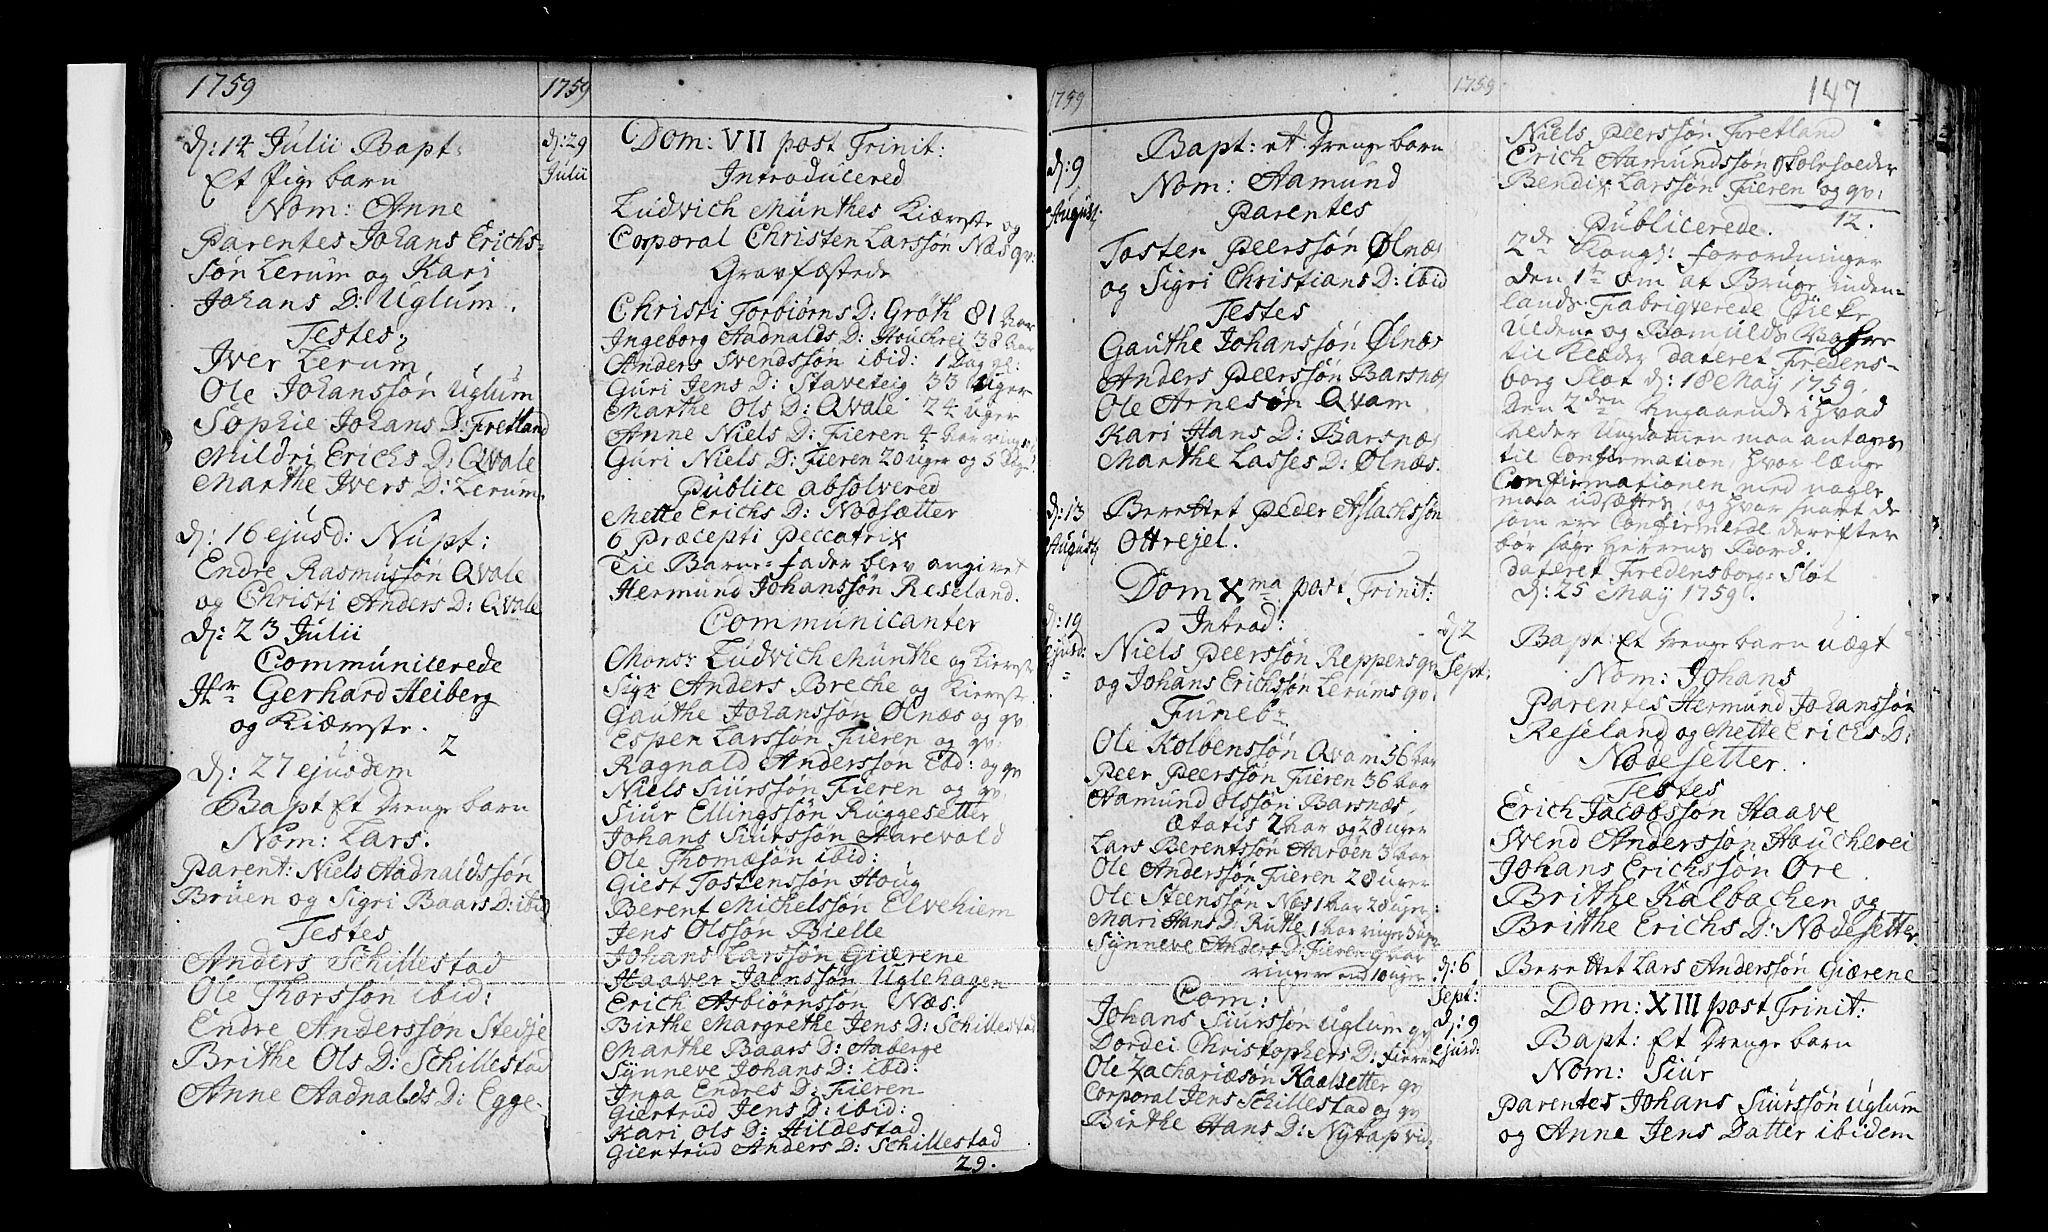 1759
d: 14 Julii Bapt:
Et Pige barn
Nom: Anne
Parentes Johans Erichs-
søn Lerum og Kari
Johans D: Uglum.
Testes
Iver Lerum,
Ole Johanssøn Uglum
Sophie Johans D: Fretland
Mildri Erichs D: Qvale
Marthe Ivers D: Lerum.
d: 16 ejusd: Nupt:
Endre Rasmussøn Qvale
og Christi Anders D: Qvale
d: 23 Julii
Communicerede
Hr Gerhard Heiberg
og Kiæreste.
2
d: 27 ejusdem
Bapt Et Drenge barn
Nom: Lars.
Parent: Niels Aadnaldssøn
Bruen og Sigri Baars D: ibid
Testes
Anders Schillestad
Ole Thorssøn ibid:
Endre Anderssøn Stedje
Brithe Ols D: Schillestad
Anne Aadnalds D: Egge.
1759
d: 29
Julii
Dom: VII post Trinit:
Introducered
Ludvich Munthes Kiæreste og
Corporal Christen Larssøn Næs qv:
Gravfæstede
Christi Torbiørns D: Grøth 81 Aar
Ingeborg Aadnalds D: Houchrei 38 Aar
Anders Svendssøn ibid: 1 Dag gl:
Guri Jens D: Staveteig 33 Uger
Marthe Ols D: Qvale 24 uger
Anne Niels D: Fieren 4 Aar
Guri Niels D: Fieren 20 uger og 5 Dage
Publice absolvered
Mette Erichs D: Nodsætter
6 Præcepti Peccatrix
Til Barne-fader blev angivet
Hermund Johanssøn Reseland.
Communicanter
Monsr Ludvich Munthe og Kiereste
Sigr Anders Breche og Kiereste
Gauthe Johanssøn Ølnæs og qv
Espen Larssøn Fieren og qv:
Ragnald Anderssøn ibd: og qv
Niels Siurssøn Fieren og qv:
Siur Ellingssøn Ruggesetter
Johans Siurssøn Aarevold
Ole Thomæsøn ibid:
Giest Tostenssøn Houg
Berent Michelssøn Elvehiem
Jens Olssøn Bielle
Johans Larssøn Giærene
Haaver Joenssøn Uglehagen
Erich Asbiørnssøn Næs.
Birthe Margrethe Jens D: Schillestad
Marthe Baars D: Aaberge
Synneve Johans D: ibid:
Inga Endres D: Fieren
Giertrud Jens D: ibid:
Kari Ols D: Hildestad
Giertrud Anders D: Schillestad
29.
1759
d: 9
August:
Bapt: et Drenge barn
Nom: Aamund
Parentes
Tosten Peerssøn Ølnæs
og Sigri Christians D: ibid
Testes
Gauthe Johanssøn Ølnæs
Anders Peerssøn Barsnæs
Ole Arnesøn Qvam
Kari Hans D: Barsnæs
Marthe Lasses D: Ølnæs.
d: 13
August
Berettet Peder Aslachssøn
Ottresel.
Dom Xma post Trinit:
d: 19
ejusd:
Introd:
Niels Peerssøn Reppens qv
og Johans Erichssøn Lerums qv.
Funebr
Ole Kolbenssøn Qvam 56 Aar
Peer Peerssøn Fieren 36 Aar
Aamund Olssøn Barsnæs.
ætatis 2 Aar og 28 uger
Lars Berentssøn Aarøen 3 Aar
Ole Anderssøn Fieren 28 uger
Ole Steenssøn Næs 1 Aar 28 uger:
Mari Hans D: Ruthe 1 Aar ringer 3 uger
Synneve Anders D: Fieren 9 Aar
ringere end 10 uger
Com:
Johans Siurssøn Uglum qv
Dordei Christophers D: Fieren
Ole Zachariæsøn Kaalsetter qv
Corporal Jens Schillestad og qv
Birthe Hans D: Nytap vid:
1759
147
Niels Peerssøn Fretland
Erich Aamundssøn Skoleholder
Bendix Larssøn Fieren og qv:
12.
Publicerede.
2de Kongl: forordninger
Den 1te Om at Bruge inden-
lands Fabriqverede
Uldene og Bomulds Vahre
til Klæder dateret Fredens-
borg Slot d: 18 May 1759.
Den 2den Angaaende i hvad
Alder Ungdomen maa antages
til Confirmation, hvor længe
Confirmationen med nogle
maa udsættes, og hvor snart de
som ere Confirmerede derefter
bør søge Herrens Bord.
dateret Fredensborg: Slot
d: 25 May 1759.
d: 2
Sept:
Bapt: Et Drenge barn uægt
Nom: Johans
Parentes Hermund Johanssøn
Reseland og Mette Erichs D:
Nodesetter.
Testes
Erich Jacobssøn Haave
Svend Anderssøn Houcherei
Johans Erichssøn Øre.
Brithe Kalbachen og
Brithe Erichs D: Nodesetter.
d: 6
Sept:
Berettet Lars Anderssøn Giærene
d: 9
ejusd:
Dom: XIII post Trinit:
Bapt: Et Drenge barn
Nom: Siur
Parentes Johans Siurssøn Uglum
og Anne Jens Datter ibidem